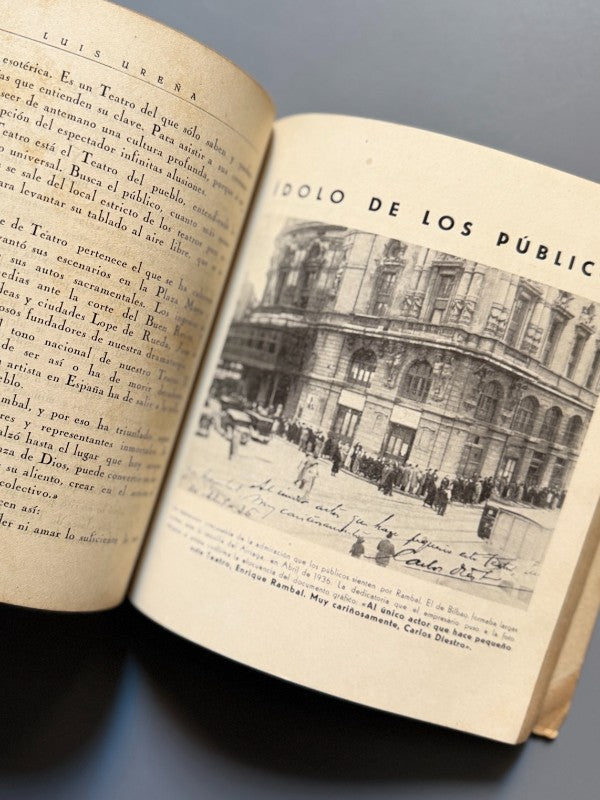 LUIS UREÑA
esotérica. Es un Teatro del que sólo saben y pueden
as que entienden su clave. Para asistir a sus
seer de antemano una cultura profunda, porque
pción del espectador infinitas alusiones.
Teatro está el Teatro del pueblo, entendiendo
o universal. Busca el público, cuanto más
e sale del local estricto de los teatros para
ara levantar su tablado al aire libre, que
e de Teatro pertenece el que se ha
rantó sus escenarios en la Plaza Mayor
sus autos sacramentales. Los
edias ante la corte del Buen Retiro
deas y ciudades Lope de Rueda,
osos fundadores de nuestra dramaturgia
tono nacional de nuestro
de ser así o ha de morir
artista en España ha de salir a
eblo.
mbal, y por eso ha triunfado
res y representantes
alzó hasta el lugar que hoy
nza de Dios, puede
su aliento, crear en el
colectivo.»
cen así:
der ni amar lo suficiente,
ÍDOLO DE LOS PÚBLIC
al único actor que hace pequeño este teatro
Muy cariñosamente
Carlos Diestro
de la admiración que los públicos sienten por Rambal. El de Bilbao, formaba largas
taquilla del Arriaga, en Abril de 1936. La dedicatoria que el empresario puso a la foto
la elocuencia del documento gráfico: «Al único actor que hace pequeño
este Teatro, Enrique Rambal. Muy cariñosamente, Carlos Diestro».